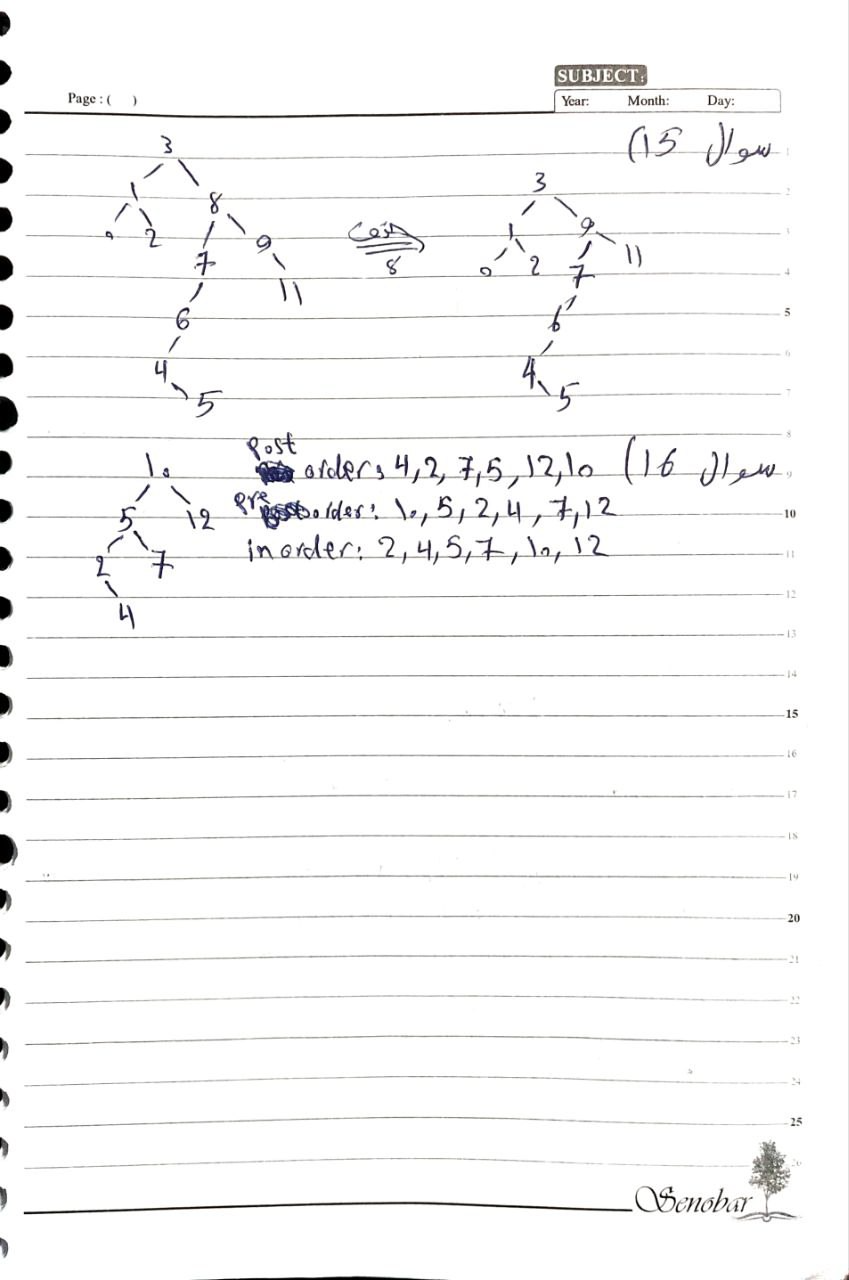 SUBJECT:
Page : ( )
Year: Month: Day:
سوال 15)
3
1 8
0 2 7 9
6 11
4
5
حذف
8
3
1 9
0 2 7 11
6
4
5
سوال 16)
post order: 4, 2, 7, 5, 12, 10
pre order: 10, 5, 2, 4, 7, 12
in order: 2, 4, 5, 7, 10, 12
10
5 12
2 7
4
1
2
3
4
5
6
7
8
9
10
11
12
13
14
15
16
17
18
19
20
21
22
23
24
25
26
Senobar